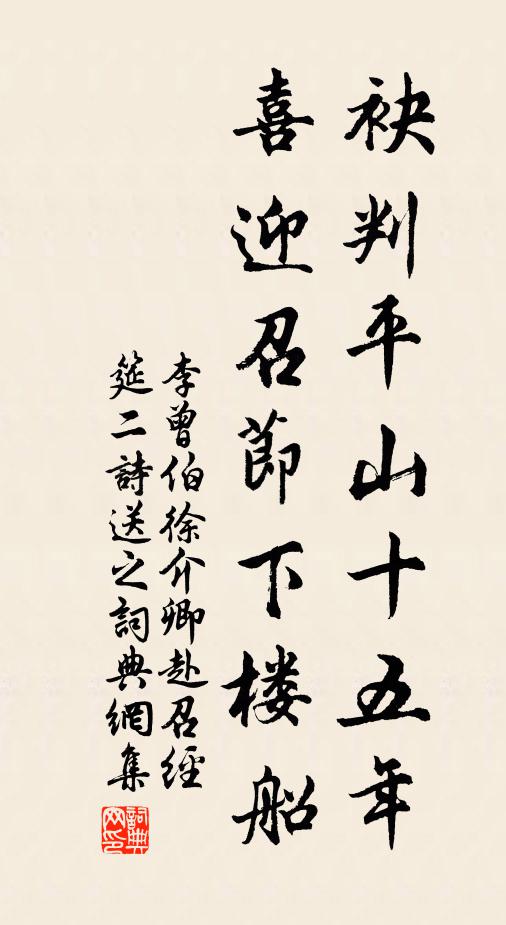 袂判平山十五年
喜迎召節下楼船
李曾伯徐介卿赴召經
筵二詩送之詞典網集
詞典网印